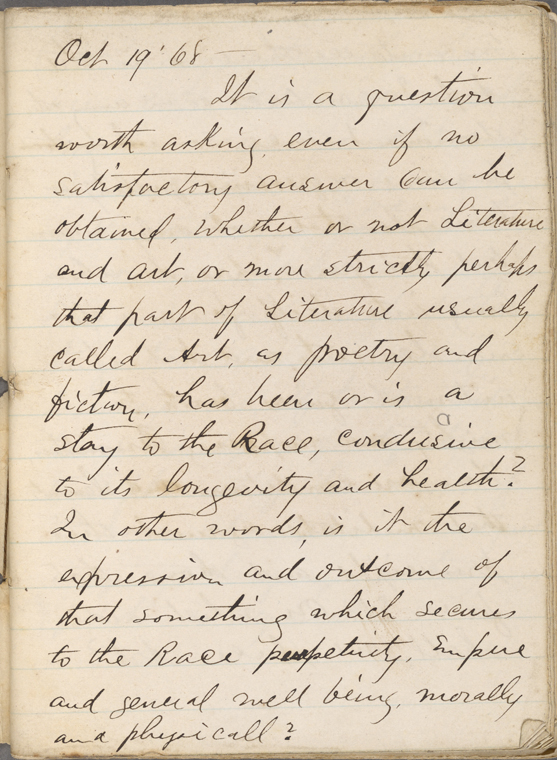 Oct 19' 68 —
It is a question
worth asking, even if no
satisfactory answer can be
obtained, whether or not Literature
and art, or more strictly perhaps
that part of Literature usually
called Art, as poetry and
fiction, has been or is a
stay to the Race, conducive
to its longevity and health?
In other words, is it the
expression and outcome of
that something which secures
to the Race perpetuity, Empire
and general well being, morally
and physicall?